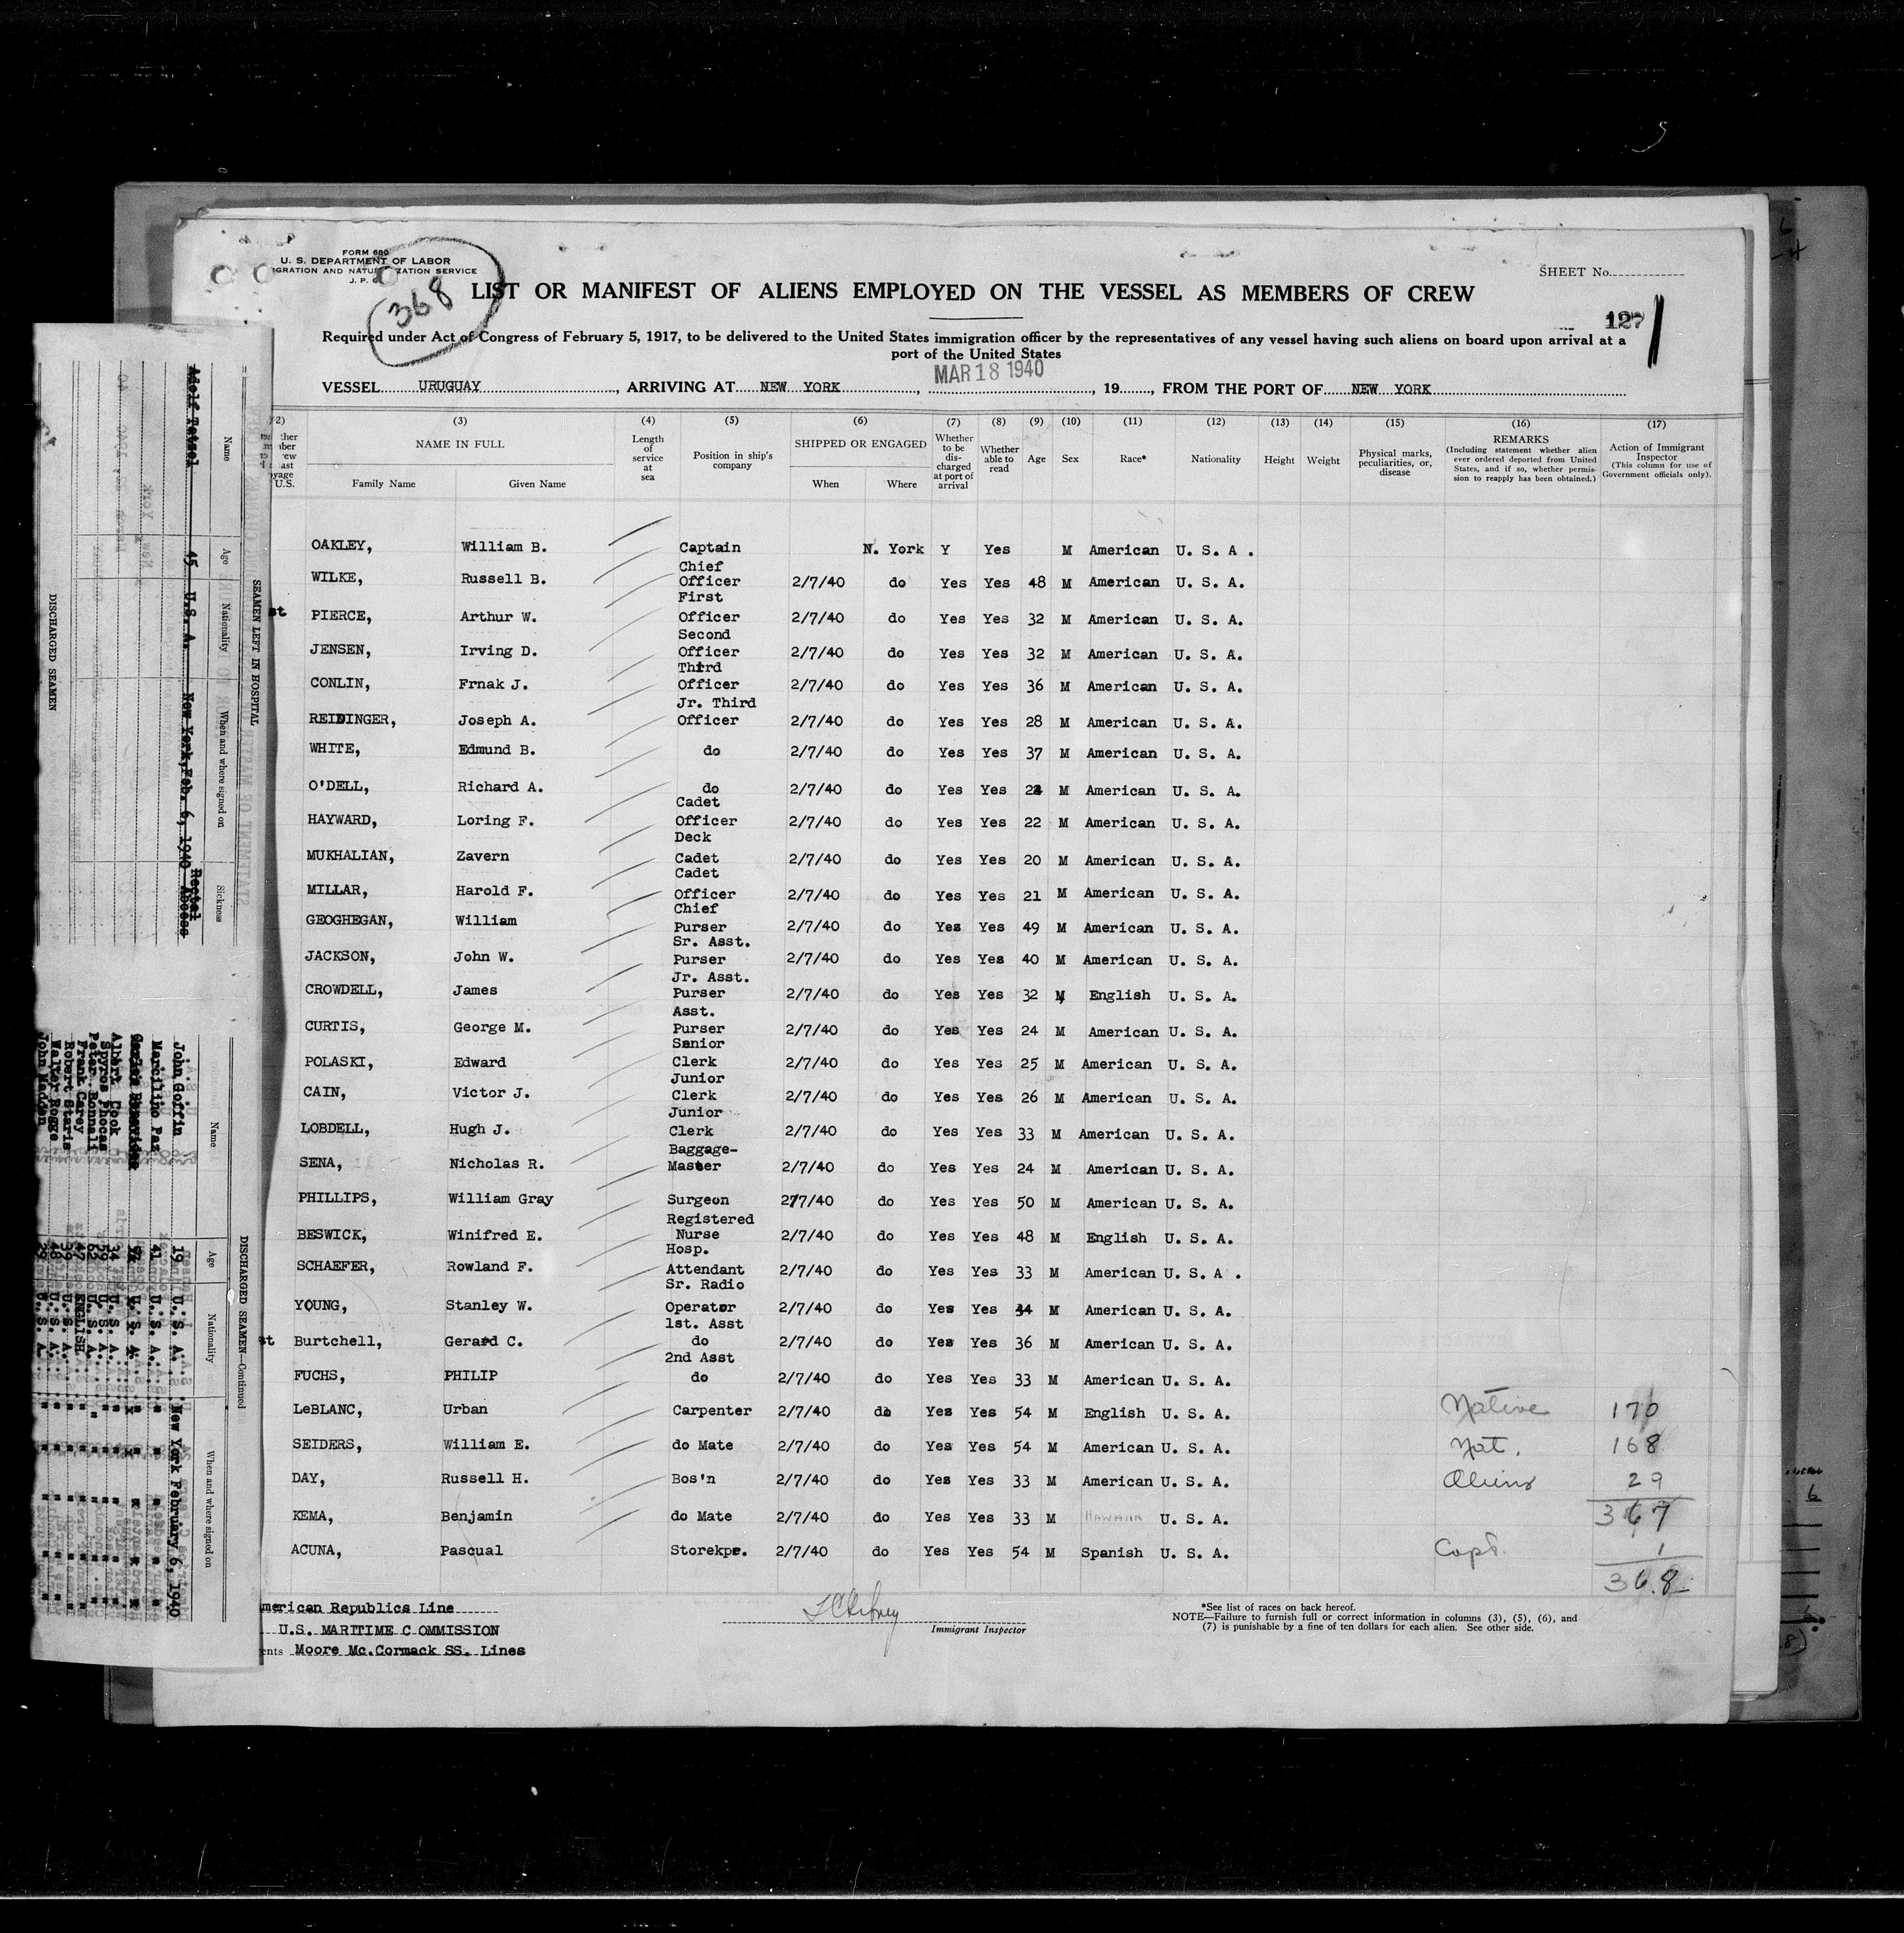 FORM 680
U. S. DEPARTMENT OF LABOR
IGRATION AND NATURALIZATION SERVICE
J. P. C.
368
SHEET No.
LIST OR MANIFEST OF ALIENS EMPLOYED ON THE VESSEL AS MEMBERS OF CREW
127
Required under Act of Congress of February 5, 1917, to be delivered to the United States immigration officer by the representatives of any vessel having such aliens on board upon arrival at a
port of the United States
MAR 18 1940
VESSEL URUGUAY, ARRIVING AT NEW YORK, , 19 , FROM THE PORT OF NEW YORK
(3) (4) (5) (6) (7) (8) (9) (10) (11) (12) (13) (14) (15) (16) (17)
NAME IN FULL Family Name Given Name
Length of service at sea
Position in ship's company
SHIPPED OR ENGAGED When Where
Whether to be discharged at port of arrival
Whether able to read
Age Sex Race* Nationality Height Weight
Physical marks, peculiarities, or, disease
REMARKS (Including statement whether alien ever ordered deported from United States, and if so, whether permission to reapply has been obtained.)
Action of Immigrant Inspector (This column for use of Government officials only).
OAKLEY, William B. Captain N. York Y Yes M American U. S. A .
WILKE, Russell B. Chief Officer 2/7/40 do Yes Yes 48 M American U. S. A.
st PIERCE, Arthur W. First Officer 2/7/40 do Yes Yes 32 M American U. S. A.
JENSEN, Irving D. Second Officer 2/7/40 do Yes Yes 32 M American U. S. A.
CONLIN, Frnak J. Third Officer 2/7/40 do Yes Yes 36 M American U. S. A.
REIDINGER, Joseph A. Jr. Third Officer 2/7/40 do Yes Yes 28 M American U. S. A.
WHITE, Edmund B. do 2/7/40 do Yes Yes 37 M American U. S. A.
O'DELL, Richard A. do 2/7/40 do Yes Yes M American U. S. A.
HAYWARD, Loring F. Cadet Officer 2/7/40 do Yes Yes 22 M American U. S. A.
MUKHALIAN, Zavern Deck Cadet 2/7/40 do Yes Yes 20 M American U. S. A.
MILLAR, Harold F. Cadet Officer 2/7/40 do Yes Yes 21 M American U. S. A.
GEOGHEGAN, William Chief Purser 2/7/40 do Yes Yes 49 M American U. S. A.
JACKSON, John W. Sr. Asst. Purser 2/7/40 do Yes Yes 40 M American U. S. A.
CROWDELL, James Jr. Asst. Purser 2/7/40 do Yes Yes 32 M English U. S. A.
CURTIS, George M. Asst. Purser 2/7/40 do Yes Yes 24 M American U. S. A.
POLASKI, Edward Senior Clerk 2/7/40 do Yes Yes 25 M American U. S. A.
CAIN, Victor J. Junior Clerk 2/7/40 do Yes Yes 26 M American U. S. A.
LOBDELL, Hugh J. Junior Clerk 2/7/40 do Yes Yes 33 M American U. S. A.
SENA, Nicholas R. Baggage-Master 2/7/40 do Yes Yes 24 M American U. S. A.
PHILLIPS, William Gray Surgeon 2/7/40 do Yes Yes 50 M American U. S. A.
BESWICK, Winifred E. Registered Nurse 2/7/40 do Yes Yes 48 M English U. S. A.
SCHAEFER, Rowland F. Hosp. Attendant 2/7/40 do Yes Yes 33 M American U. S. A .
YOUNG, Stanley W. Sr. Radio Operator 2/7/40 do Yes Yes 34 M American U. S. A.
st Burtchell, Gerard C. 1st. Asst do 2/7/40 do Yes Yes 36 M American U. S. A.
FUCHS, PHILIP 2nd Asst do 2/7/40 do Yes Yes 33 M American U. S. A.
LeBLANC, Urban Carpenter 2/7/40 do Yes Yes 54 M English U. S. A. Native 170
SEIDERS, William E. do Mate 2/7/40 do Yes Yes 54 M American U. S. A. Nat. 168
DAY, Russell H. Bos'n 2/7/40 do Yes Yes 33 M American U. S. A. Aliens 29
KEMA, Benjamin do Mate 2/7/40 do Yes Yes 33 M U. S. A. 367
ACUNA, Pascual Storekpr. 2/7/40 do Yes Yes 54 M Spanish U. S. A. Capt. 1
368
merican Republics Line
U.S. MARITIME COMMISSION
ents Moore Mc.Cormack SS. Lines
Immigrant Inspector
*See list of races on back hereof.
NOTE—Failure to furnish full or correct information in columns (3), (5), (6), and
(7) is punishable by a fine of ten dollars for each alien. See other side.
SEAMEN LEFT IN HOSPITAL
Name Age Nationality When and where signed on Sickness
Adolf Tatsel 45 U.S. A. New York, Feb. 6, 1940 Rectal Abcess
DISCHARGED SEAMEN
DISCHARGED SEAMEN—Continued
Name Age Nationality When and where signed on
John Goffin 19 U. S. A. New York February 6, 1940
Marcilijo Paz 41 U. S. A. " " "
Albert Cook 34 U. S. A. " " "
Spyros Phocas 29 U. S. A. " " "
Peter Bonnali 62 U. S. A. " " "
Frank Carey 47 ENGLISH " " "
Robert Staris 39 U. S. A. " " "
Walter Rogge 48 U. S. A. " " "
John Madden 29 U. S. A. " " "